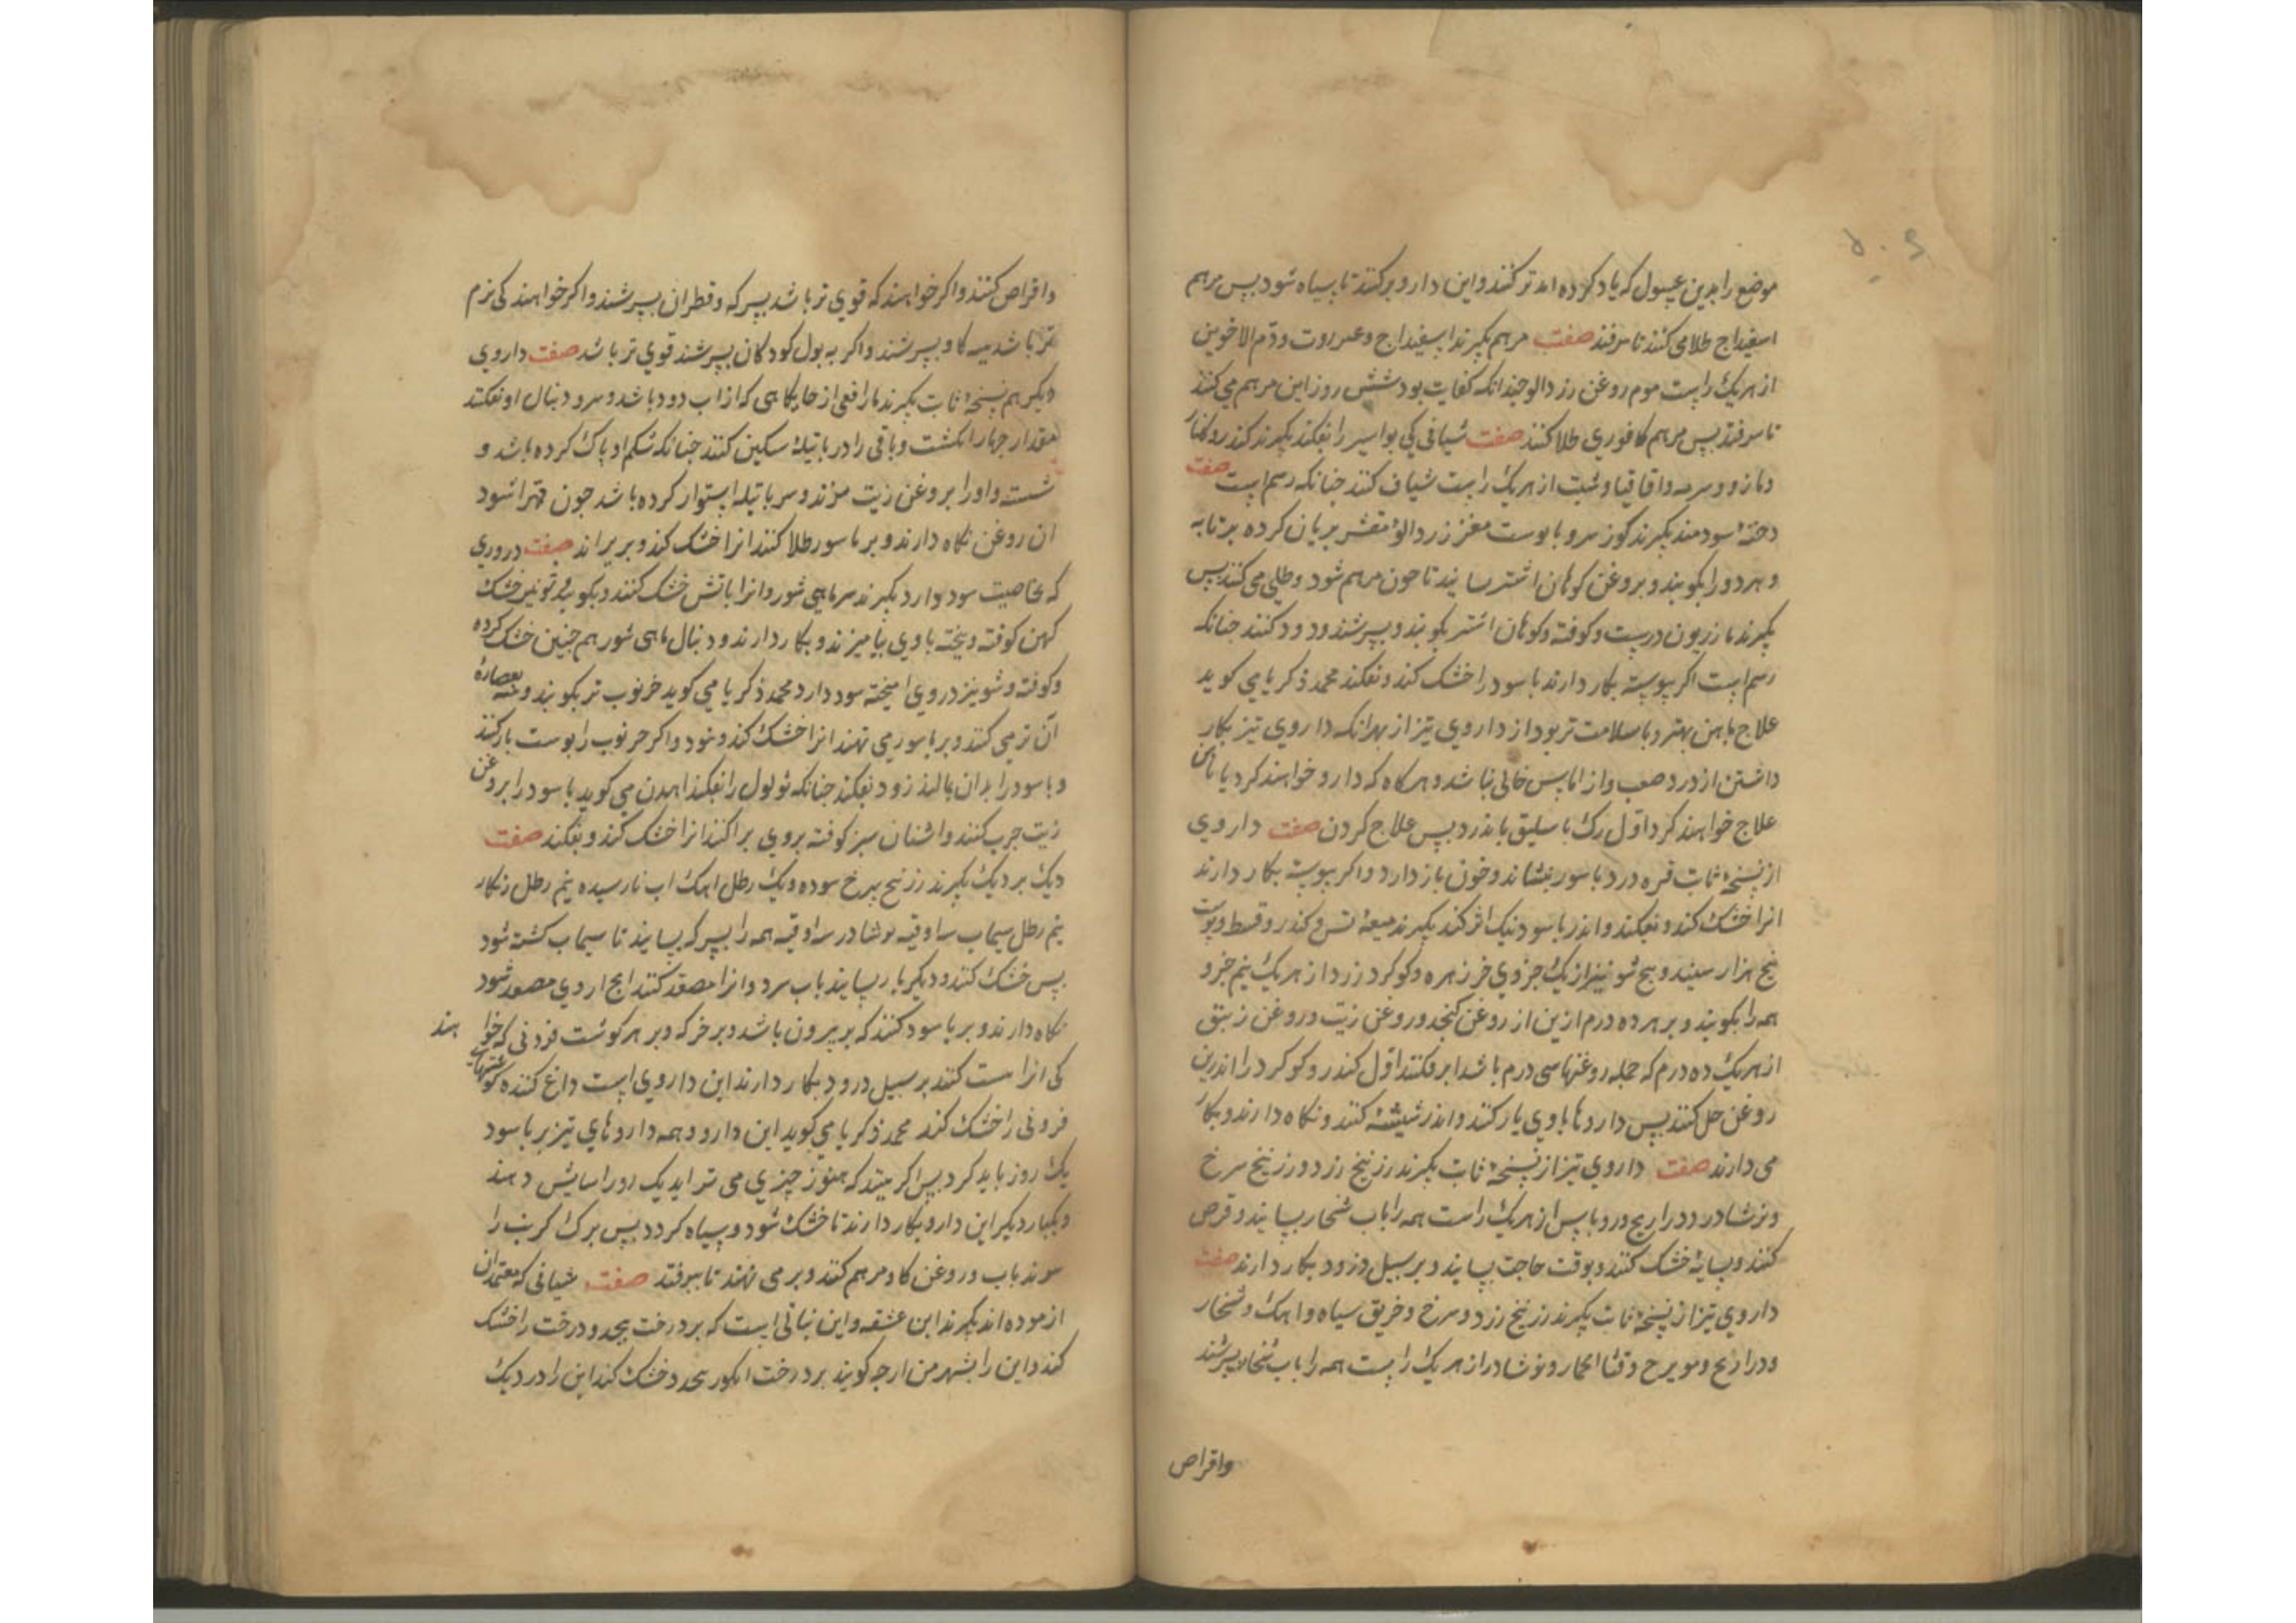 موضع را بدین غسول که یاد کرده اند تر کنند و این دارو بر کنند تا سیاه شود پس مرهم
اسفیداج طلا می کنند تا برفتد صفت مرهم بکیرند اسفیداج و عنزروت و دم الاخوین
از هریک راست موم روغن زردالو چندانکه کفایت بود شش روز این مرهم می کنند
تا برفتد پس مرهم کافوری طلا کنند صفت شیافی کی بواسیر را بفکند بکیرند کندر و کلنار
و مازو و سرمه و اقاقیا و شب از هریک راست شیاف کنند چنانکه رسم است صفت
دخنهٔ سودمند بکیرند کوز سرو با پوست مغز زردالؤ مقشر بریان کرده بر تابه
و هر دو را بکوبند و بروغن کوهان اشتر بسایند تا چون مرهم شود و طلی می کنند پس
بکیرند مازریون درست و کوفته و کوهان اشتر بکوبند و بسرشند و دود کنند چنانکه
رسم است اکر پیوسته بکار دارند باسور را خشک کند و بفکند محمد زکریا می کوید
علاج باهن بهتر و با سلامت تر بود از داروی تیز از بهر انکه داروی تیز بکار
داشتن از درد صعب و از اماس خالی نباشد و هرکاه که دارو خواهند کرد یا باهن
علاج خواهند کرد اول رک باسلیق باید زد پس علاج کردن صفت داروی
از نسخهٔ ثابت قره درد باسور بنشاند و خون باز دارد و اکر پیوسته بکار دارند
انرا خشک کند و بفکند و اندر باسور نیک اثر کند بکیرند میعهٔ تر و کندر و قسط و پوست
بیخ هزار سپند و بیخ شونیز از یک جزوی خر زهره و کوکرد زرد از هر یک نیم جزو
همه را بکوبند و بر هر ده درم ازین از روغن کنجد و روغن زیت و روغن زنبق
از هریک ده درم که جمله روغنها سی درم باشد ابر فکنند اول کندر و کوکرد را اندرین
روغن حل کنند پس داروها با وی یار کنند و اندر شیشهٔ کنند و نکاه دارند و بکار
می دارند صفت داروی تیز از نسخهٔ ثابت بکیرند زرنیخ زرد و زرنیخ سرخ
و نوشادر و ذراریح و روباس از هریک راست همه را باب شخار بسایند و قرص
کنند و بسایهٔ خشک کنند و بوقت حاجت بسایند و بر سبیل ذرور بکار دارند صفت
داروی تیز از نسخهٔ ثابت بکیرند زرنیخ زرد و سرخ و خربق سیاه و اهک و شخار
و ذراریح و مویزج و قثا الحمار و نوشادر از هر یک راست همه را باب شخار بسرشند
واقراص
واقراص کنند و اکر خواهند که قوی تر باشد بسرکه و قطران بسرشند و اکر خواهند کی نرم
تر باشد بپیه کاو بسرشند و اکر به بول کودکان بسرشند قوی تر باشد صفت داروی
دیکر هم نسخهٔ ثابت بکیرند مار افعی از جایکاهی که از اب دور باشد و سر و دنبال او بفکنند
مقدار چهار انکشت و باقی را در باتیلهٔ سکین کنند چنانکه شکم او پاک کرده باشد و
شسته و او را بروغن زیت بپزند و سر باتیله استوار کرده باشد چون مهرا شود
ان روغن نکاه دارند و بر باسور طلا کنند انرا خشک کند و بریزاند صفت ذروری
که بخاصیت سود دارد بکیرند سر ماهی شور و انرا باتش خشک کنند و بکوبند و پنیر خشک
کهن کوفته و بیخته با وی بیامیزند و بکار دارند و دنبال ماهی شور هم چنین خشک کرده
و کوفته و شونیز در وی امیخته سود دارد محمد زکریا می کوید خرنوب تر بکوبند و پنبه بعصارهٔ
آن تر می کنند و بر باسور می نهند انرا خشک کند و شود و اکر خرنوب را پوست باز کنند
و باسور را بدان بمالند زود بفکند چنانکه ثولول را بفکند اهرن می کوید باسور را بروغن
زیت چرب کنند و اشنان سبز کوفته بروی پراکنند انرا خشک کند و بفکند صفت
دیک بر دیک بکیرند زرنیخ سرخ سوده و یک رطل اهک اب نارسیده نیم رطل زنکار
نیم رطل سیماب سه اوقیه نوشادر سه اوقیه همه را بسرکه بسایند تا سیماب کشته شود
پس خشک کنند و دیکر بار بسایند باب سرد و انرا مصعد کنند انچ از وی مصعد شود
نکاه دارند و بر باسور کنند که بر بیرون باشد و بر خرکه و بر هر کوشت فزونی که خوا هند
کی انرا پست کنند بر سبیل ذرور بکار دارند این داروی است داغ کننده کوشتهاء
فزونی را خشک کند محمد زکریا می کوید این دارو و همه داروهای تیز بر باسور
یک روز باید کرد پس اکر بینند که هنوز چیزی می تراید یک روز اسایش دهند
و یکبار دیکر این دارو بکار دارند تا خشک شود و سیاه کردد پس برک کرنب را
بپزند باب و روغن کاو مرهم کنند و بر می نهند تا بیرفتد صفت شیافی که معتمدان
ازموده اند بکیرند ابن عشقه و این نباتی است که بر درخت پیچد و درخت را خشک
کند و این را بشهر من ارجه کویند بر درخت انکور پیچد و خشک کند این را در دیک